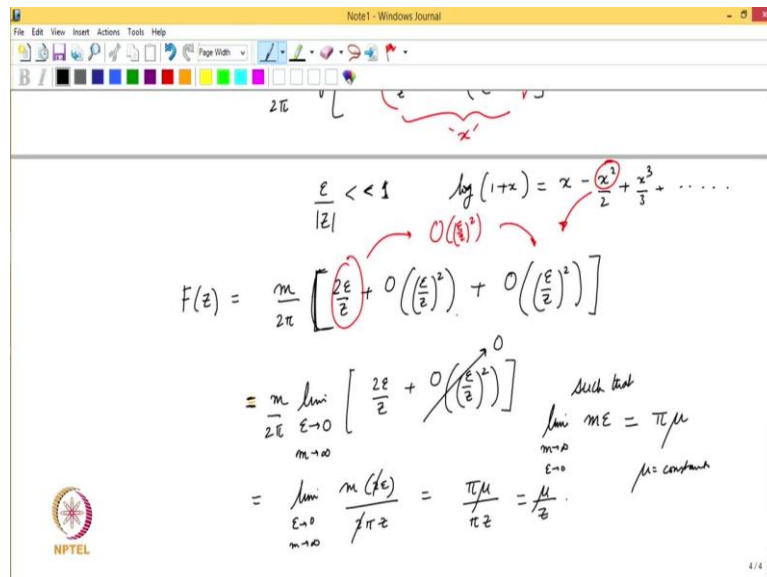 Note1 - Windows Journal
File Edit View Insert Actions Tools Help
Page Width
B I
2π [ (z
'x'
ε/|z| << 1 log(1+x) = x - x²/2 + x³/3 + .....
O((ε/z)²)
F(z) = m/2π [ 2ε/z + O((ε/z)²) + O((ε/z)²) ]
= m/2π lim ε→0 m→∞ [ 2ε/z + O((ε/z)²) ] 0
such that
lim m→∞ ε→0 mε = πμ
μ = constant
= lim ε→0 m→∞ m(2ε)/2πz = πμ/πz = μ/z.
NPTEL
4/4